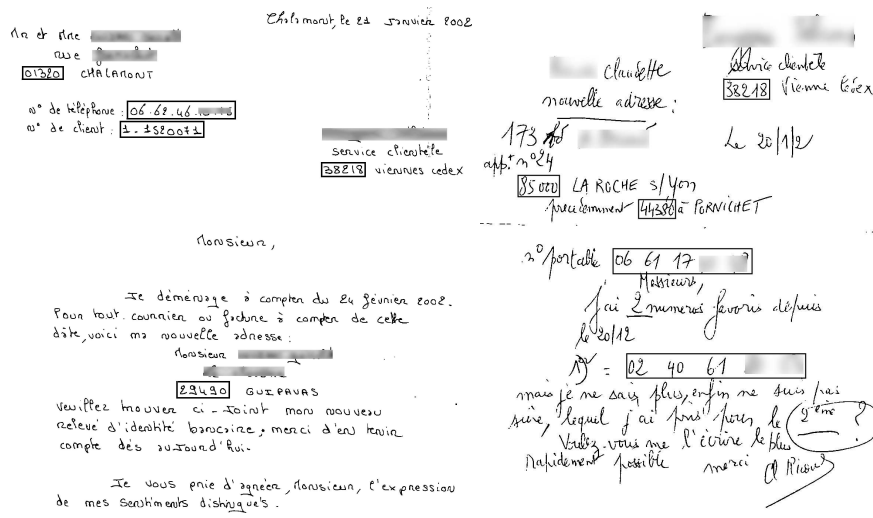 Chalamont, le 21 Janvier 2002
Mr et Mme
rue
01320 CHALAMONT
n° de téléphone : 06.62.46.
n° de client : 1-1520071
service clientèle
38218 viennes cedex
Monsieur,
Je déménage à compter du 24 février 2002.
Pour tout courrier ou facture à compter de cette
date, voici ma nouvelle adresse :
Monsieur
29490 GUIPAVAS
veuillez trouver ci-Joint mon nouveau
relevé d'identité bancaire, merci d'en tenir
compte dès aujourd'hui.
Je vous prie d'agréer, Monsieur, l'expression
de mes sentiments distingués.
Claudette
nouvelle adresse :
173
app.t n°24
85000 LA ROCHE s/Yon
precedemment 44380 à PORNICHET
service clientèle
38218 Vienne Cédex
Le 20/1/2
n° portable 06 61 17
Messieurs,
J'ai 2 numeros favoris depuis
le 20/12
1) = 02 40 61
mais je ne sais plus, enfin ne suis pas
sûre, lequel j'ai pris pour le 2ème ?
Voulez-vous me l'écrire le plus
rapidement possible merci